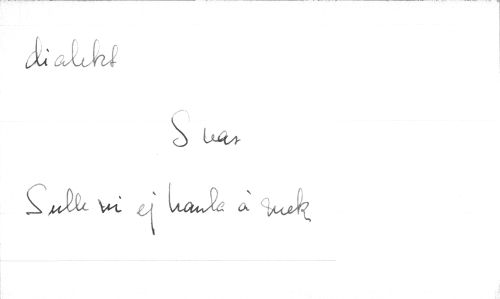 dialekt
Svar
Sulle vi ej hanla å